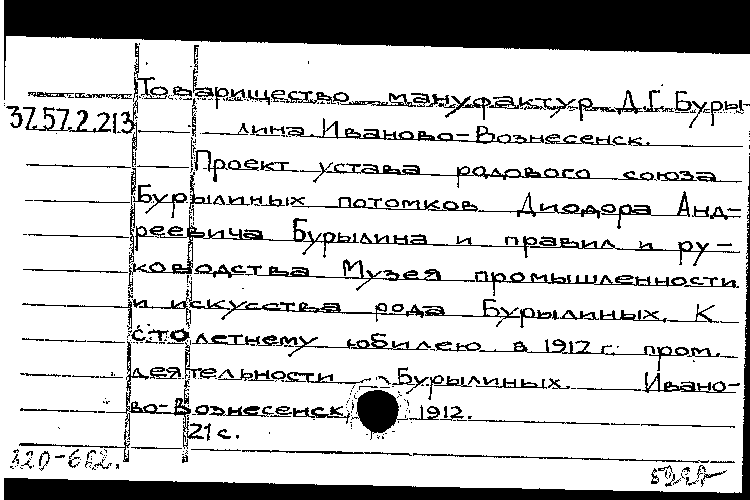 Товарищество мануфактур Д.Г. Буры-
37.57.2.213 лина. Иваново-Вознесенск.
Проект устава родового союза
Бурылиных потомков Диодора Анд-
реевича Бурылина и правил и ру-
ководства Музея промышленности
и искусства рода Бурылиных. К
столетнему юбилею в 1912 г. пром.
деятельности Бурылиных. Ивано-
во-Вознесенск, 1912.
21 с.
320-682.